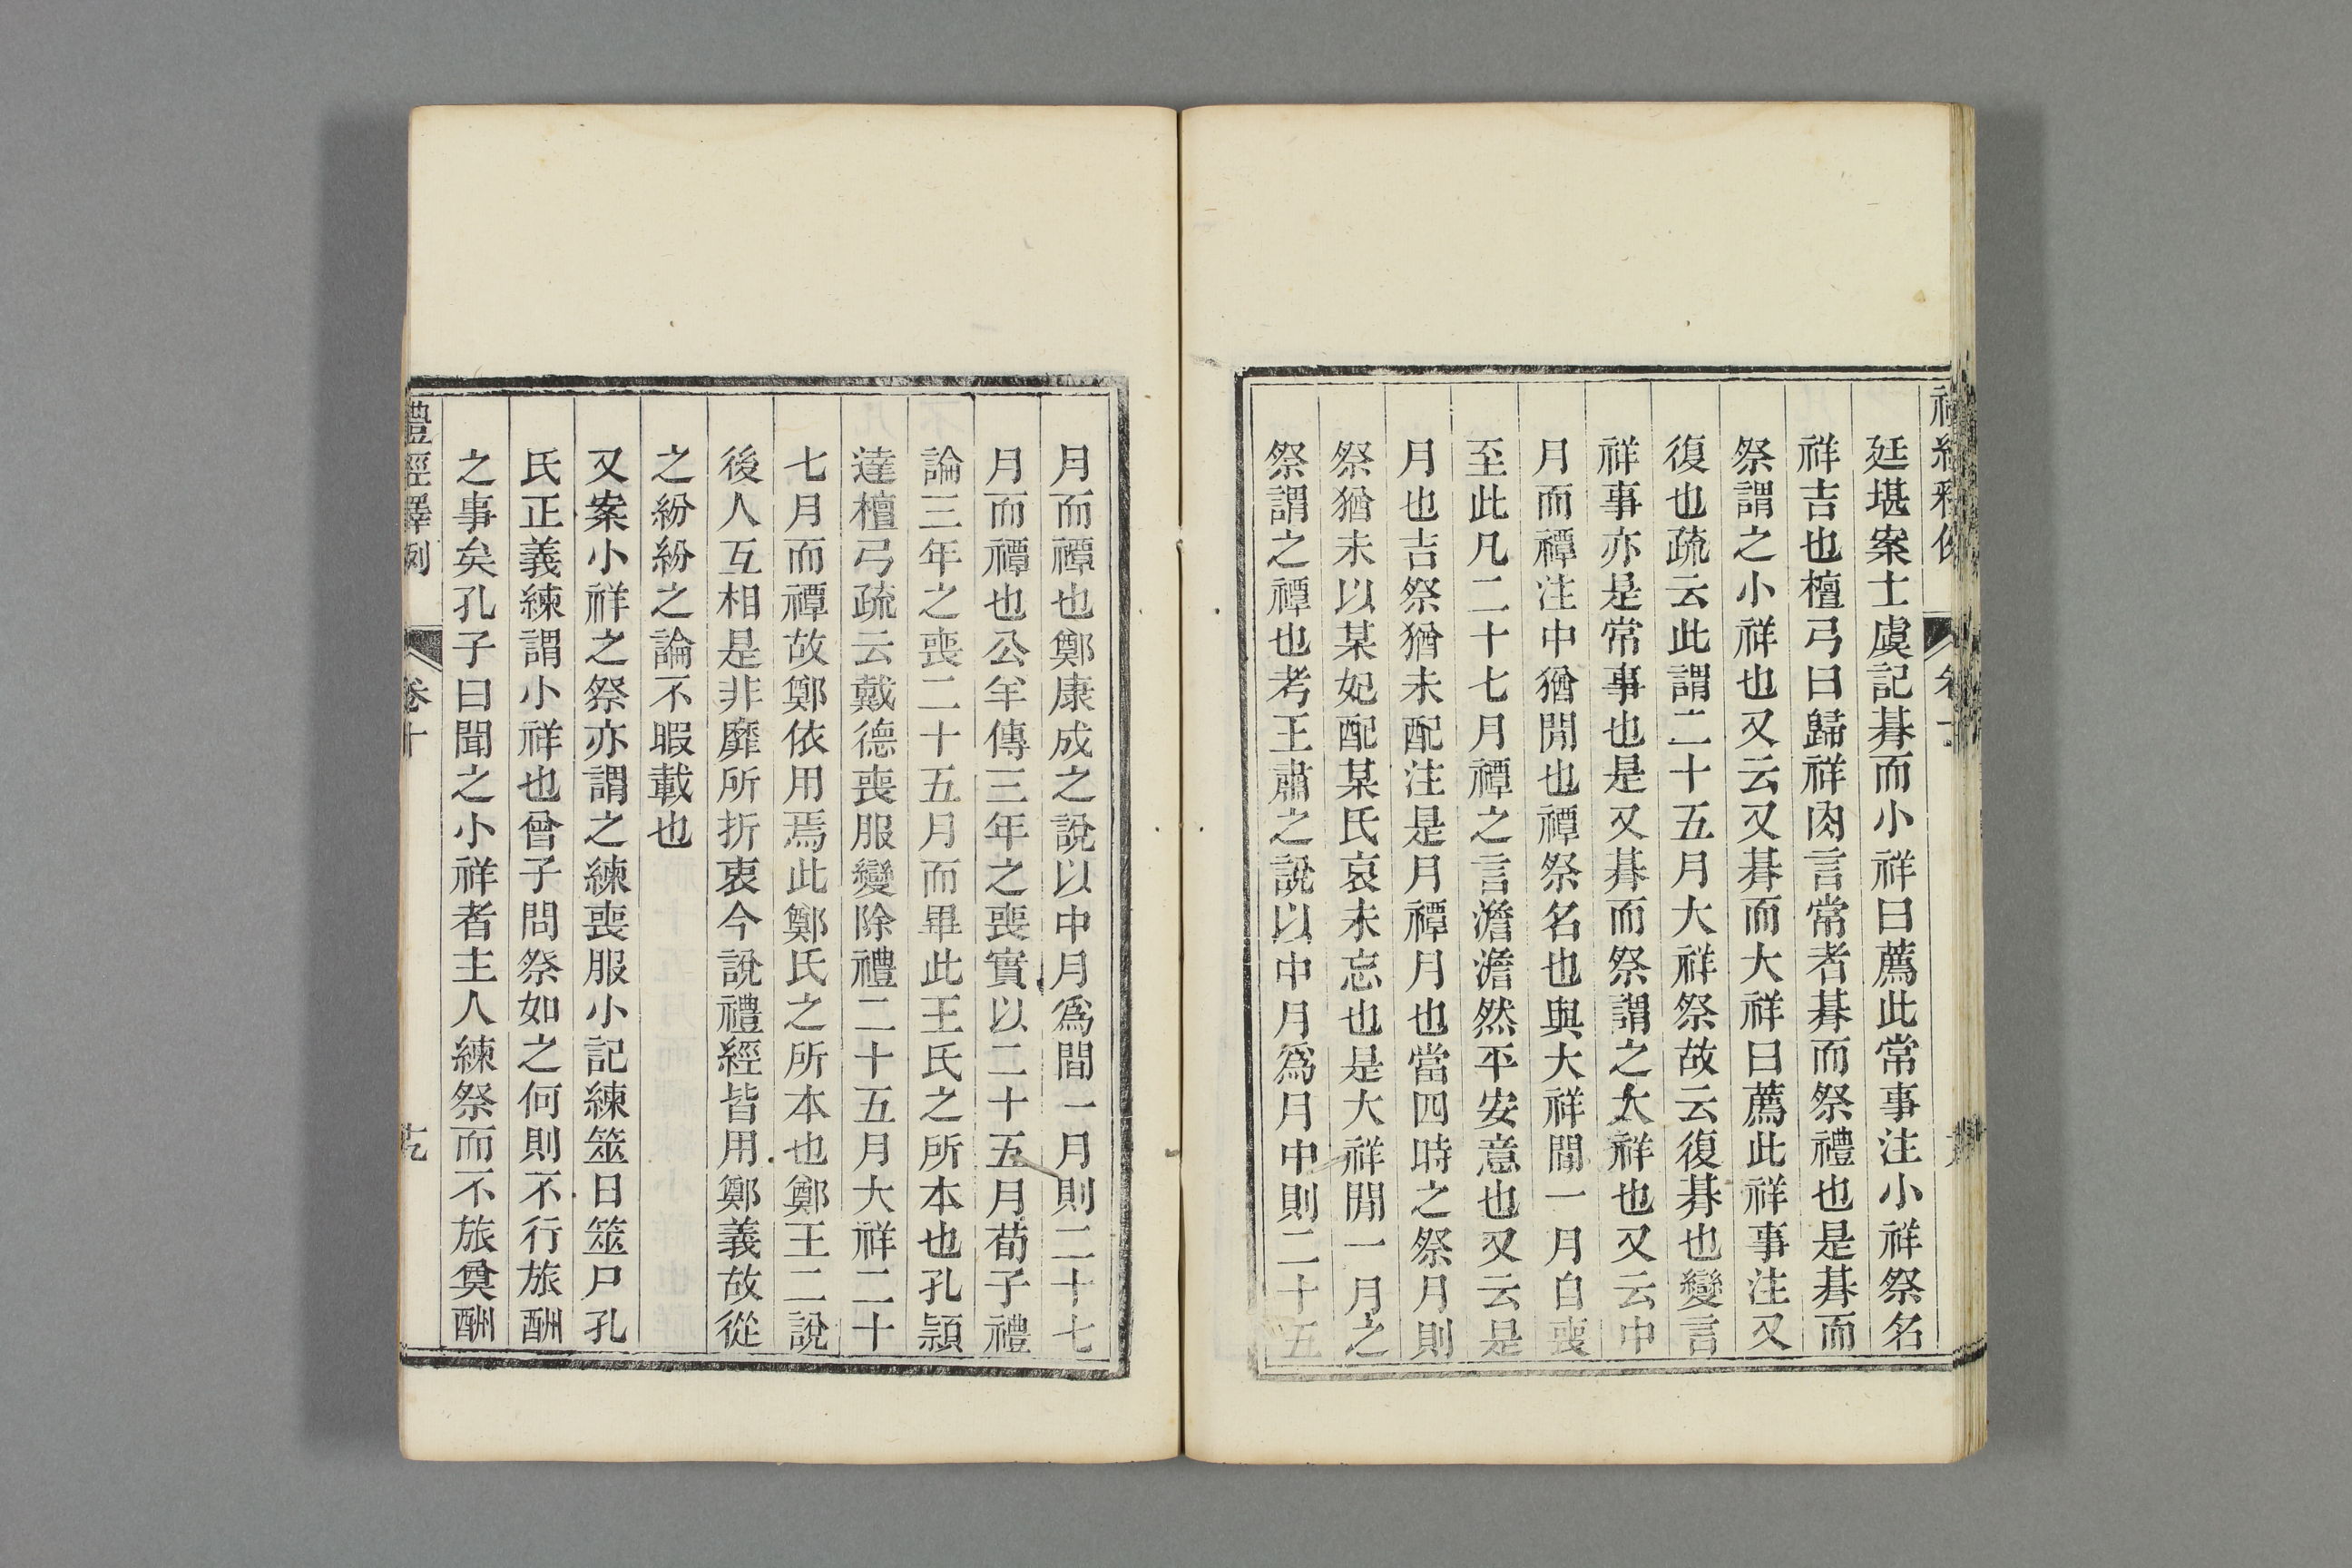 廷堪案士虞記朞而小祥曰薦此常事注小祥祭名
祥吉也檀弓曰歸祥肉言常者朞而祭禮也是朞而
祭謂之小祥也又云又朞而大祥曰薦此祥事注又
復也疏云此謂二十五月大祥祭故云復朞也變言
祥事亦是常事也是又朞而祭謂之大祥也又云中
月而禫注中猶閒也禫祭名也與大祥閒一月自喪
至此凡二十七月禫之言澹澹然平安意也又云是
月也吉祭猶未配注是月禫月也當四時之祭月則
祭猶未以某妃配某氏哀未忘也是大祥閒一月之
祭謂之禫也考王肅之說以中月爲月中則二十五
月而禫也鄭康成之說以中月爲間一月則二十七
月而禫也公羊傳三年之喪實以二十五月荀子禮
論三年之喪二十五月而畢此王氏之所本也孔穎
達檀弓疏云戴德喪服變除禮二十五月大祥二十
七月而禫故鄭依用焉此鄭氏之所本也鄭王二說
後人互相是非靡所折衷今說禮經皆用鄭義故從
之紛紛之論不暇載也
又案小祥之祭亦謂之練喪服小記練筮日筮尸孔
氏正義練謂小祥也曾子問祭如之何則不行旅酬
之事矣孔子曰聞之小祥者主人練祭而不旅奠酬
禮經釋例 卷十